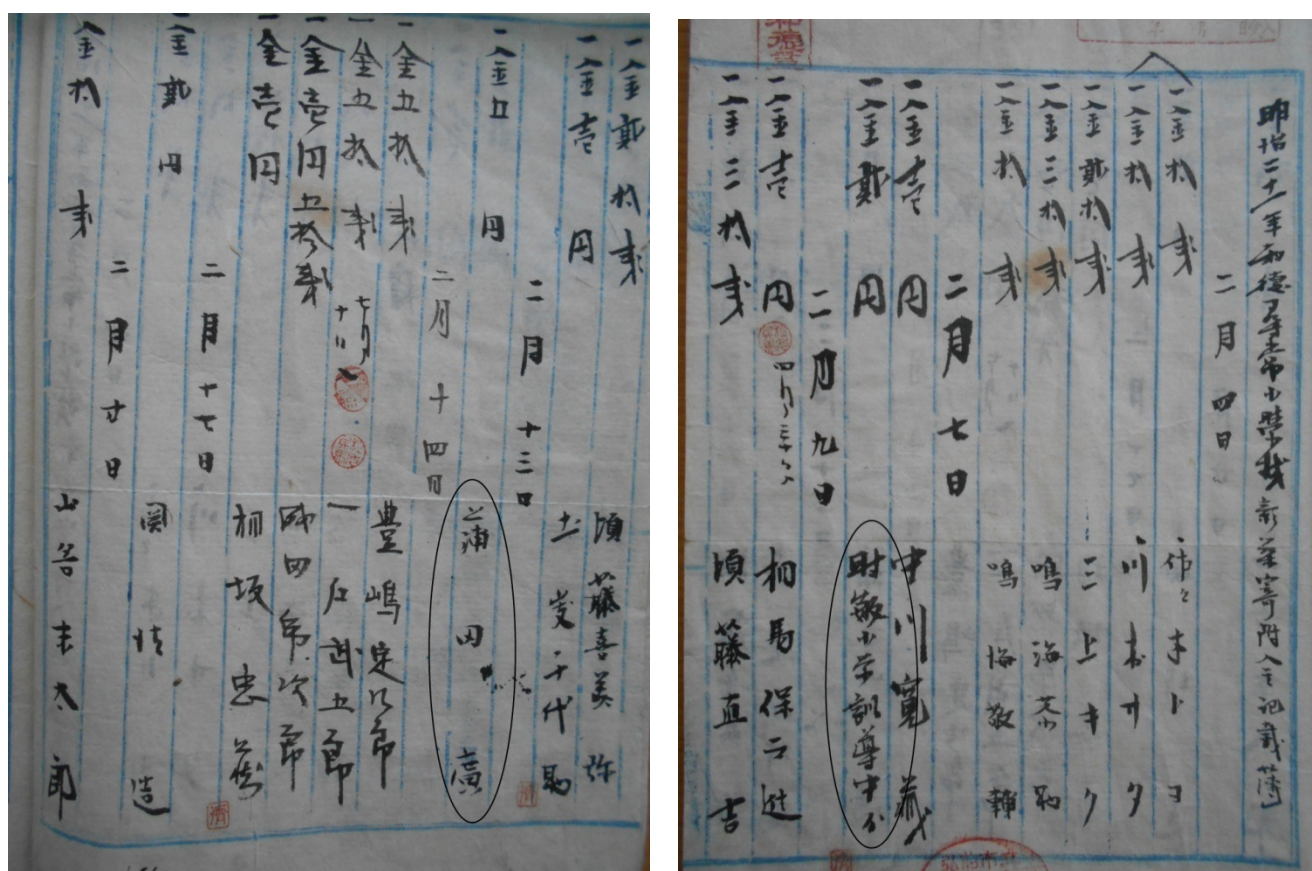 明治二十一年和徳尋常小学校新築寄附人名記載簿
二月四日
一金拾銭 佐々木トヨ
一金拾銭 川村
一金弐拾銭 三上キク
一金三拾銭 鳴海
一金拾銭 鳴海敬輔
二月七日
一金壱円 中川寛蔵
一金弐円 時敏小学訓導中分
二月九日
一金壱円 相馬保
一金三拾銭 須藤直吉
一金弐拾銭 須藤喜美弥
一金壱円 土岐千代助
二月十三日
一金五円 蒲田廣
二月十四日
一金五拾銭 豊嶋定次郎
一金五拾銭 一戸武五郎
一金壱円五拾銭 次郎
一金壱円 相坂忠蔵
二月十七日
一金弐円 関清造
二月廿日
一金拾銭 山谷末太郎